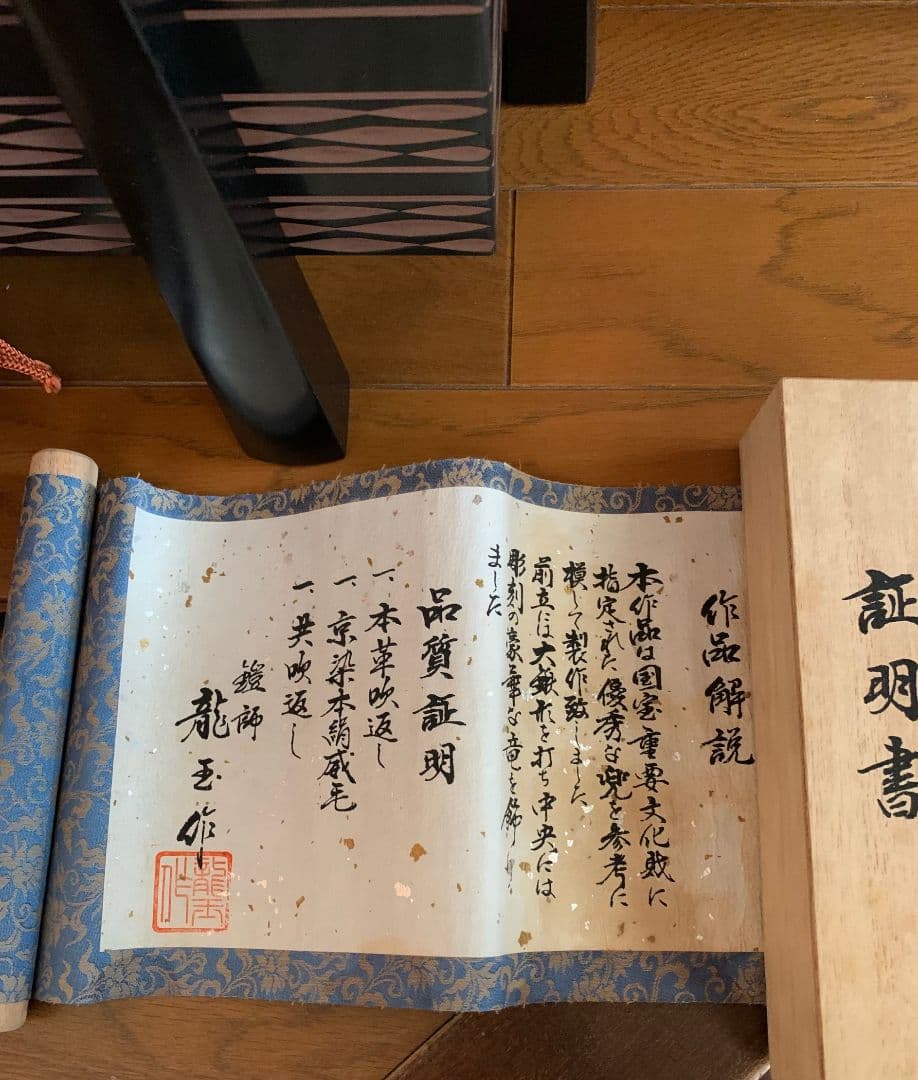 証明書
作品解説
本作品は国宝重要文化財に
指定された優秀な兜を参考に
模して製作致しました
前立には大鍬形を打ち中央には
彫刻の豪華な竜を飾り
ました
品質証明
一、本革吹返し
一、京染本絹威毛
一、共吹返し
鎧師
龍玉作
龍玉作